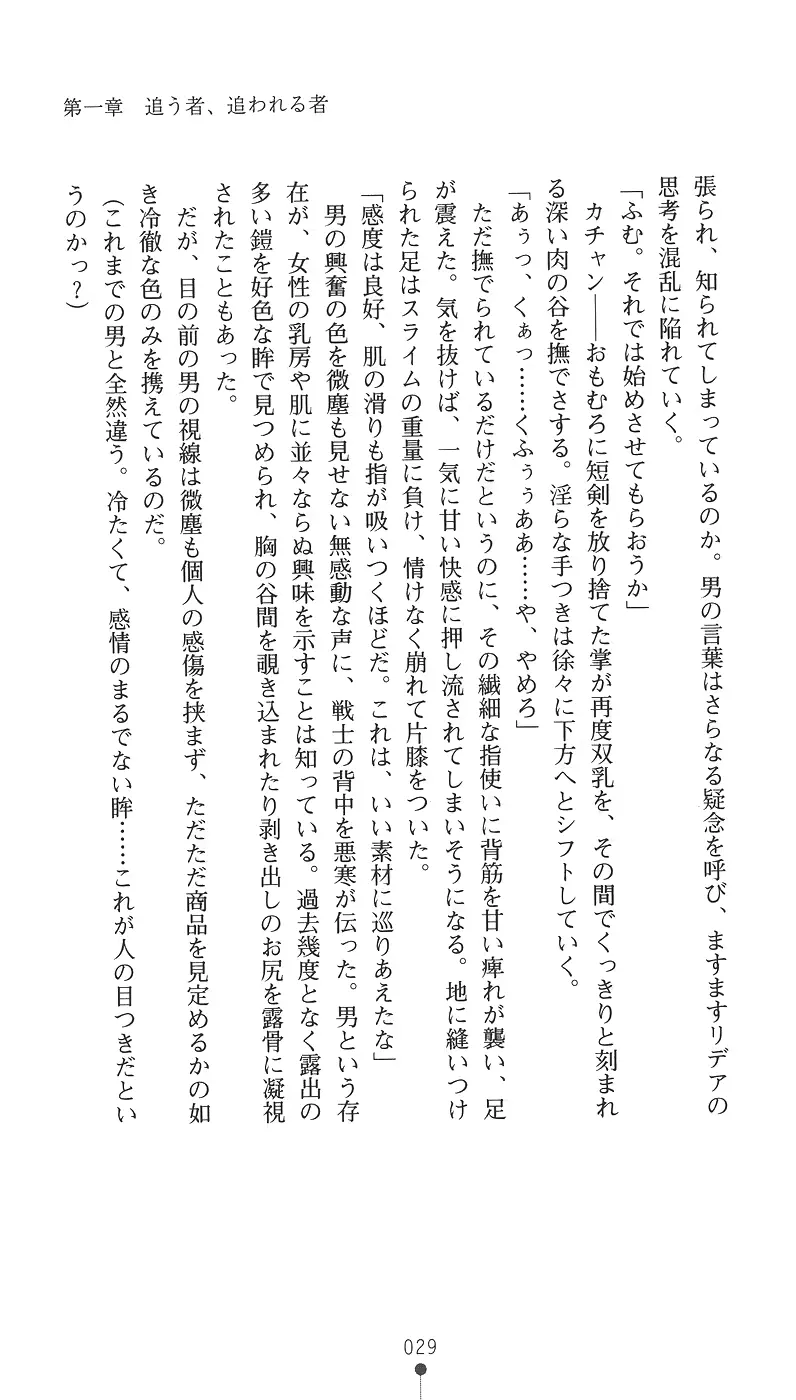 第一章　追う者、追われる者
張られ、知られてしまっているのか。男の言葉はさらなる疑念を呼び、ますますリデアの
思考を混乱に陥れていく。
「ふむ。それでは始めさせてもらおうか」
カチャン――おもむろに短剣を放り捨てた掌が再度双乳を、その間でくっきりと刻まれ
る深い肉の谷を撫でさする。淫らな手つきは徐々に下方へとシフトしていく。
「あぅっ、くぁっ……くふぅぅああ……や、やめろ」
ただ撫でられているだけだというのに、その繊細な指使いに背筋を甘い痺れが襲い、足
が震えた。気を抜けば、一気に甘い快感に押し流されてしまいそうになる。地に縫いつけ
られた足はスライムの重量に負け、情けなく崩れて片膝をついた。
「感度は良好、肌の滑りも指が吸いつくほどだ。これは、いい素材に巡りあえたな」
男の興奮の色を微塵も見せない無感動な声に、戦士の背中を悪寒が伝った。男という存
在が、女性の乳房や肌に並々ならぬ興味を示すことは知っている。過去幾度となく露出の
多い鎧を好色な眸で見つめられ、胸の谷間を覗き込まれたり剥き出しのお尻を露骨に凝視
されたこともあった。
だが、目の前の男の視線は微塵も個人の感傷を挟まず、ただただ商品を見定めるかの如
き冷徹な色のみを携えているのだ。
（これまでの男と全然違う。冷たくて、感情のまるでない眸……これが人の目つきだとい
うのかっ？）
029